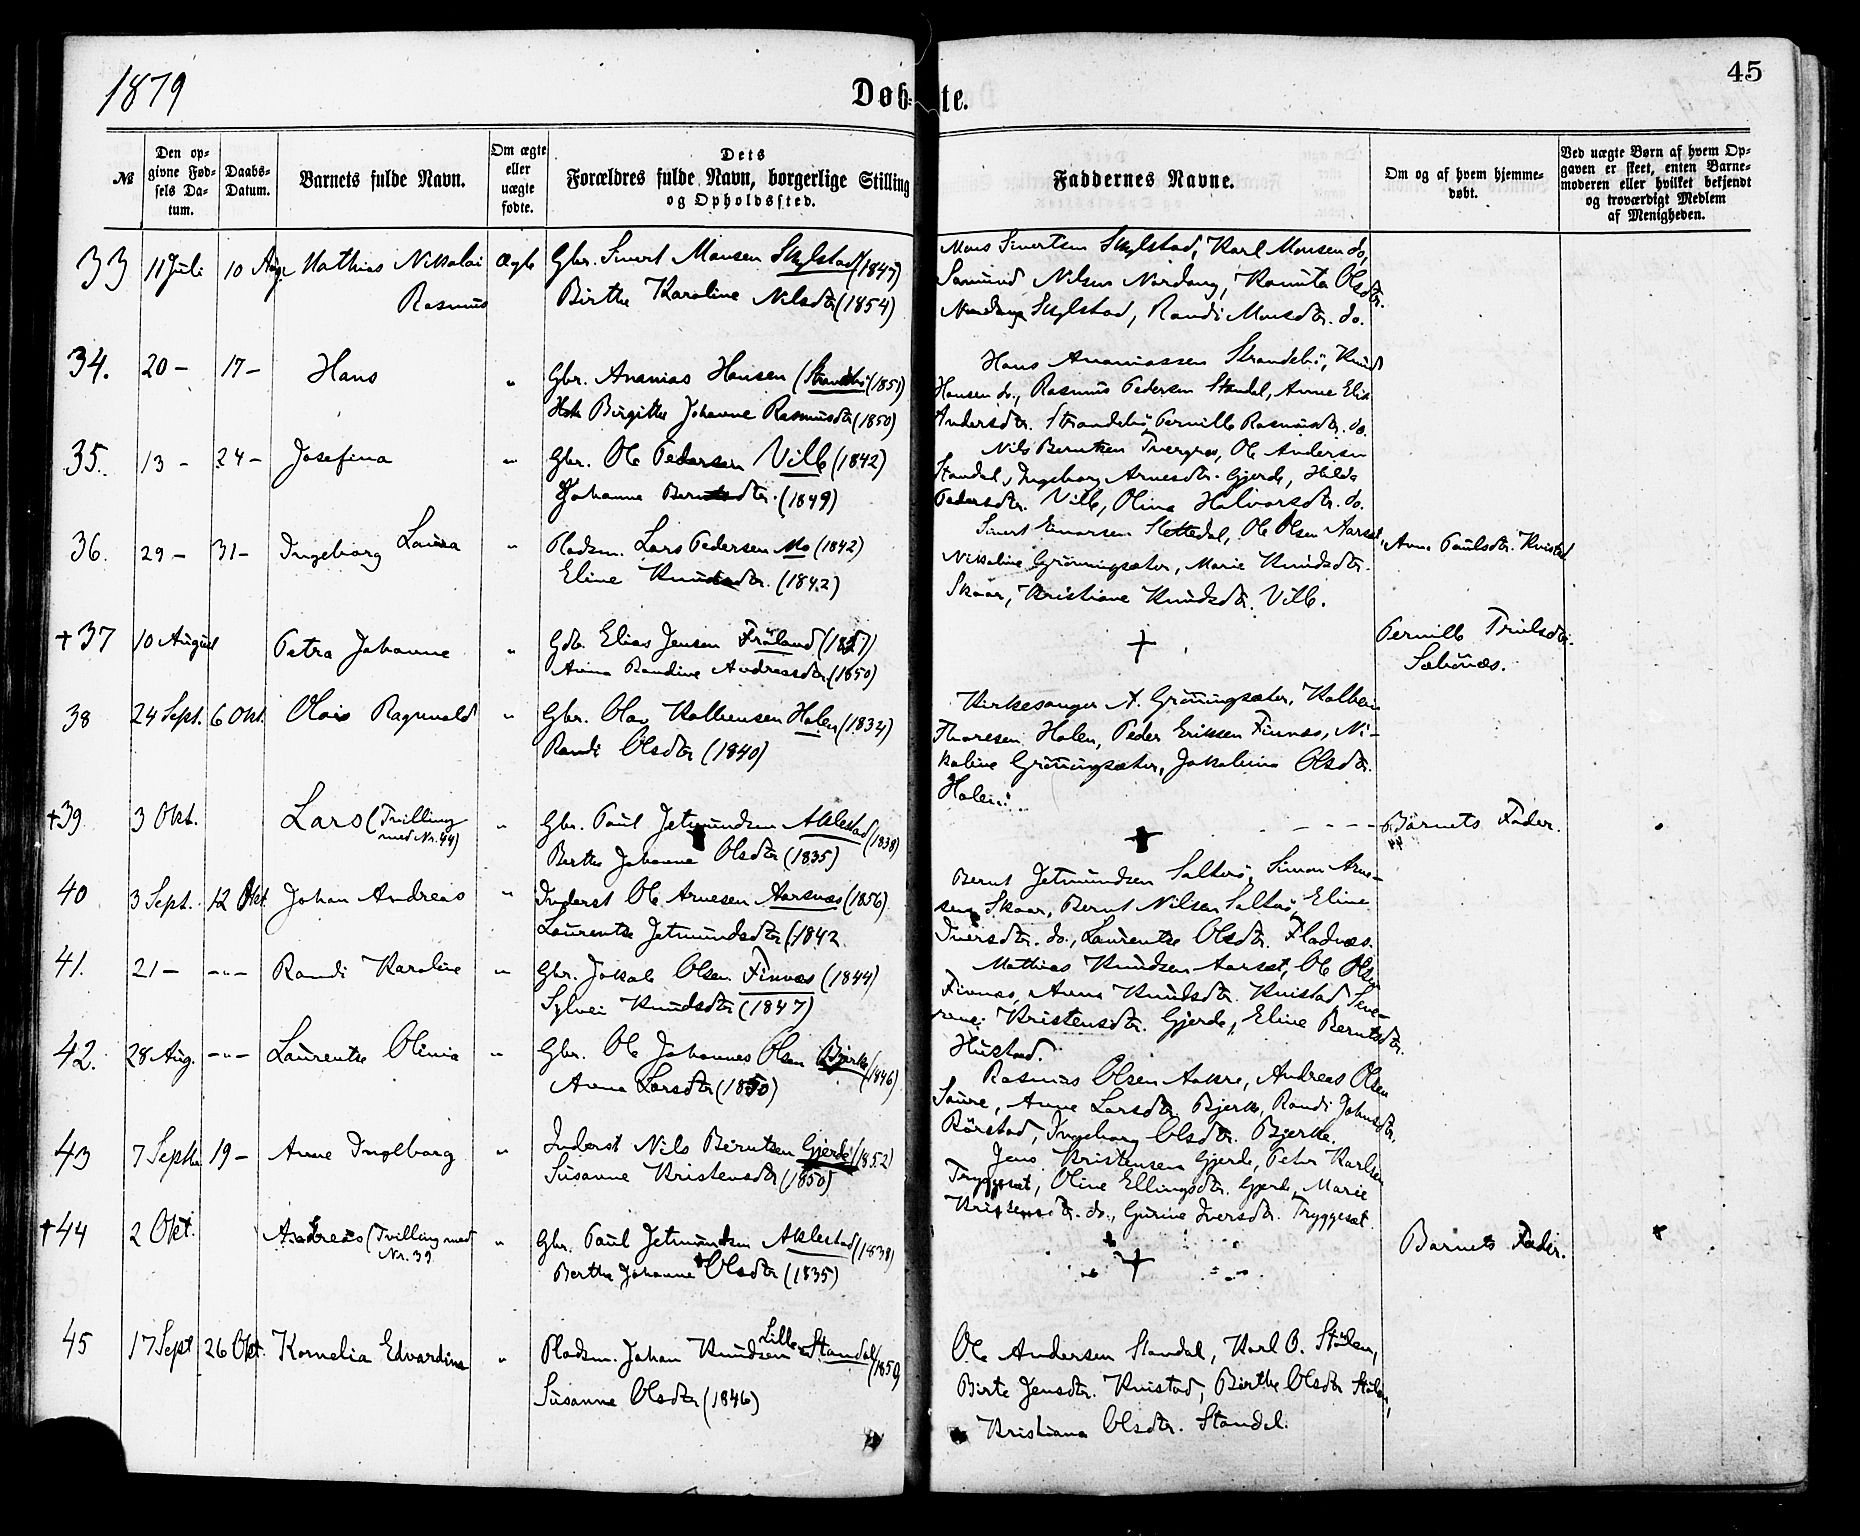 1879
Døb-
te.
45
№
Den op-
givne Fød-
sels Da-
tum.
Daabs-
Datum.
Barnets fulde Navn.
Om ægte
eller
uægte
fødte.
Dets
Forældres fulde Navn, borgerlige Stilling
og Opholdssted.
Faddernes Navne.
Om og af hvem hjemme-
døbt.
Ved uægte Børn af hvem Op-
gaven er skeet, enten Barne-
moderen eller hvilket bekjendt
og troværdigt Medlem
af Menigheden.
33 11 Juli 10 Aug. Mathias Nikolai Ægte Gbr. Sivert Monsen Skylstad (1847)
Rasmus Birthe Karoline Nilsdtr (1854)
Mons Sivertsen Skylstad, Karl Monsen do,
Nilsen Nordang, Olsdtr.
Skylstad, Randi Monsdtr. do.
34. 20 - 17 - Hans " Gbr. Ananias Hansen (1851)
Birgitte Johanne Rasmusdtr (1850)
Hans Ananiassen Strandebø, Knud
Hansen do., Rasmus Pedersen Standal, Anne Elis
Andersdtr. Strandebø, Pernille Rasmusdtr. do.
35. 13 - 24 - Josefina " Gbr. Ole Pedersen Ville (1842)
Johanne Berntsdtr. (1849)
Nils Berntsen Tvergros, Ole Andersen
Standal, Ingeborg Arnesdtr. Gjerde, Hilde
Pedersdtr. Ville, Oline Halvorsdtr. do.
36. 29 - 31 - Ingeborg Laura " Pladsm. Lars Pedersen Mo (1842)
Eline Knudsdtr. (1842)
Sivert Einarsen Slettedal, Ole Olsen Aarset,
Nikoline Grönningsæter, Marie Knudsdtr.
Skaar, Kristiane Knudsdtr. Ville.
Anne Paulsdtr. Kvistad
+37 10 August Petra Johanne " Gbr. Elias Jensen (1857)
Anna Randine Andreasdtr (1850)
+
Pernille Trulsdtr.
Sæbönæs.
38 24 Sept. 6 Okt. Olais Ragnvald " Gbr. Olav Kolbensen Holen (1834)
Randi Olsdtr (1840)
Kirkesanger A. Grönningsæter, Kolbein
Thoresen Holen, Peder Eriksen Finnes, Ni-
koline Grönningsæter, Jakobine Olsdtr.
Holen.
+39 3 Okt. Lars (Tvilling
med Nr. 44) " Gbr. Paul Jetmundsen Aklestad (1838)
Berthe Johanne Olsdtr (1835)
+
Börnets Fader.
40 3 Sept. 12 Okt. Johan Andreas " Inderst Ole Arnesen Aarsnes (1856)
Laurentse Jetmundsdtr (1842
Bernt Jetmundsen Salterö, Simon Arne-
sen Skaar, Bernt Nilsen Salterö, Eline
Iversdtr. do., Laurentse Olsdtr. Fladnæs.
41. 21 - -"- Randi Karoline " Gbr. Jakob Olsen Finnes (1844)
Sylvei Knudsdtr (1847)
Mathias Knudsen Aarset, Ole Olsen
Finnes, Anna Knudsdtr. Kvistad, Seve-
rine Kristensdtr. Gjerde, Eline Berntsdtr.
Hustad.
42. 28 Aug. -"- Laurentse Olivia " Gbr. Ole Johannes Olsen Bjerke (1846)
Anna Larsdtr (1850)
Rasmus Olsen Aakre, Andreas Olsen
Saure, Anne Larsdtr. Bjerke, Randi Johnsdtr.
Rörstad, Ingeborg Olsdtr. Bjerke.
43 7 Septbr 19 - Anne Ingeborg " Inderst Nils Berntsen Gjerde (1852)
Susanne Kristensdtr (1850)
Jens Kristensen Gjerde, Peter Karlsen
Tryggeset, Oline Ellingsdtr. Gjerde, Marie
Kristensdtr. do., Gurine Iversdtr. Tryggeset.
+44 2 Okt. Andreas (Tvilling med
Nr. 39 " Gbr. Paul Jetmundsen Aklestad (1838)
Berthe Johanne Olsdtr (1835)
+
Barnets Fader.
45 17 Sept 26 Okt. Kornelia Edvardine " Pladsm. Johan Knudsen Lille-Standal (1850)
Susanne Olsdtr (1846)
Ole Andersen Standal, Karl O. Stölen,
Birte Jensdtr. Kvistad, Berthe Olsdtr Stölen,
Kristiana Olsdtr. Standal.